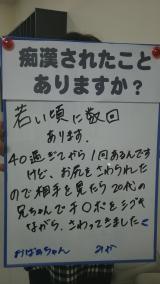 痴漢されたこと
ありますか？
若い頃に数回
あります。
40過ぎてから1回あるんです
けど、お尻をさわられた
ので相手を見たら20代の
兄ちゃんでチ〇ポをシゴキ
ながら、さわってきました
おばあちゃん